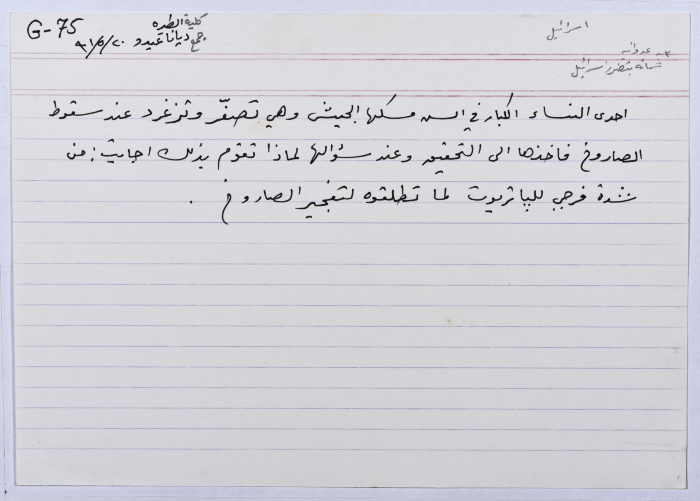 G-75
كلية الطيره
جمع ديانا عيدو
٩١/٥/٢٠
اسرائيل
٣- عدوانه
شماته بتضرر اسرائيل
احدى النساء الكبار في السن مسكها الجيش وهي تصفّر وتزغرد عند سقوط
الصاروخ فاخذها الى التحقيق وعند سؤالها لماذا تقوم بذلك اجابت: من
شدة فرحي للباتريوت لما تطلقوه لتفجير الصاروخ .